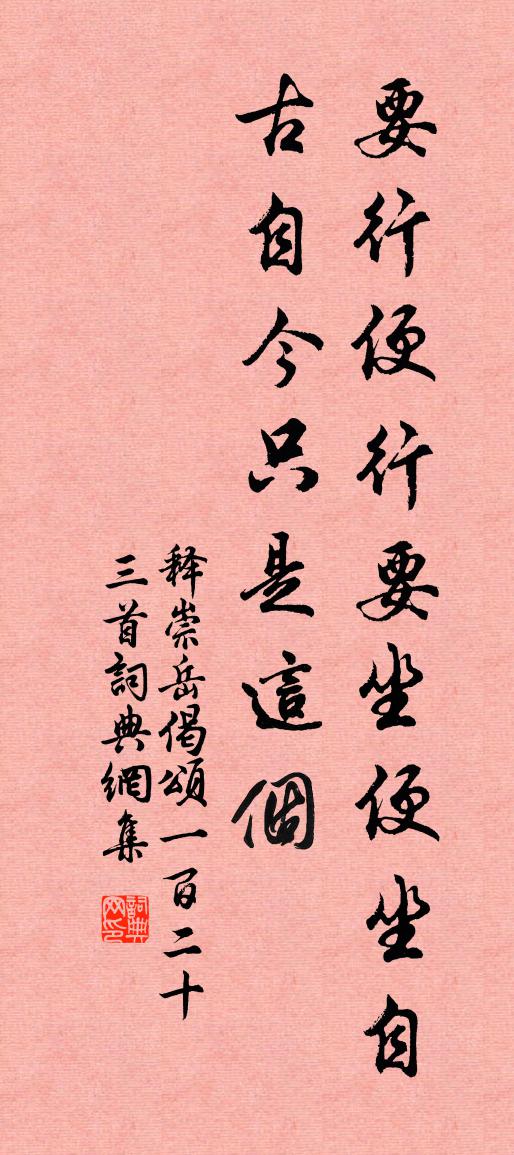 要行便行要坐便坐自
古自今只是這個
释崇岳偈頌一百二十
三首詞典網集
詞典
网印